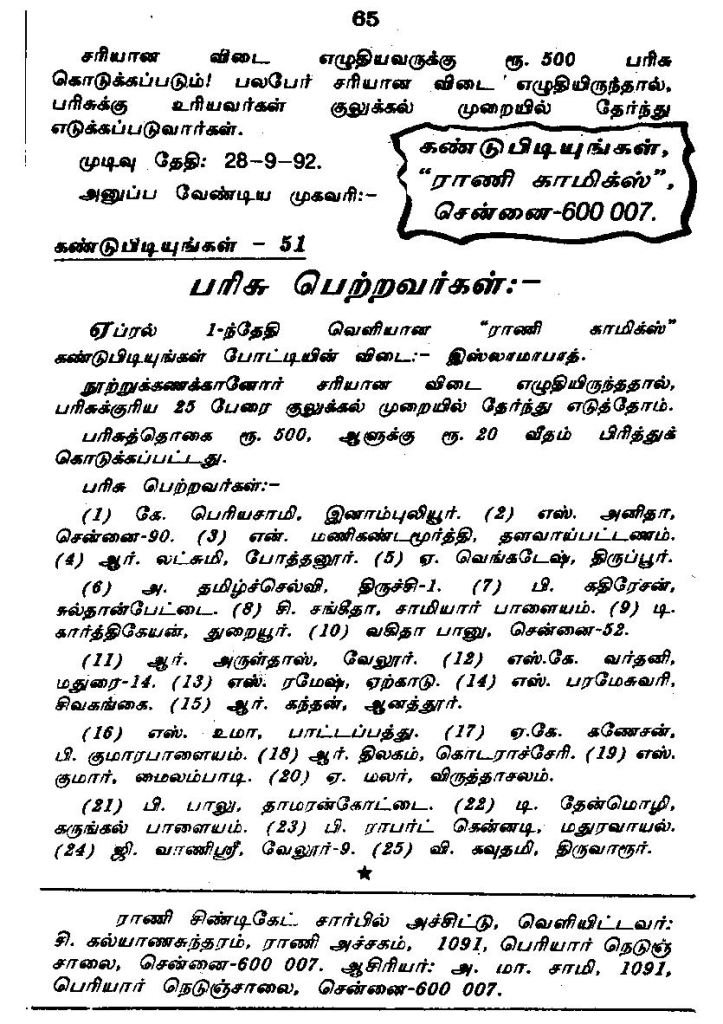 65
சரியான விடை எழுதியவருக்கு ரூ. 500 பரிசு
கொடுக்கப்படும்! பலபேர் சரியான விடை எழுதியிருந்தால்,
பரிசுக்கு உரியவர்கள் குலுக்கல் முறையில் தேர்ந்து
எடுக்கப்படுவார்கள்.
முடிவு தேதி: 28-9-92.
அனுப்ப வேண்டிய முகவரி:-
கண்டுபிடியுங்கள்,
“ராணி காமிக்ஸ்”,
சென்னை-600 007.
கண்டுபிடியுங்கள் - 51
பரிசு பெற்றவர்கள்:-
ஏப்ரல் 1-ந்தேதி வெளியான “ராணி காமிக்ஸ்”
கண்டுபிடியுங்கள் போட்டியின் விடை:- இஸ்லாமாபாத்.
நூற்றுக்கணக்கானோர் சரியான விடை எழுதியிருந்ததால்,
பரிசுக்குரிய 25 பேரை குலுக்கல் முறையில் தேர்ந்து எடுத்தோம்.
பரிசுத்தொகை ரூ. 500, ஆளுக்கு ரூ. 20 வீதம் பிரித்துக்
கொடுக்கப்பட்டது.
பரிசு பெற்றவர்கள்:-
(1) கே. பெரியசாமி, இனாம்புலியூர். (2) எஸ். அனிதா,
சென்னை-90. (3) என். மணிகண்டமூர்த்தி, தளவாய்பட்டணம்.
(4) ஆர். லட்சுமி, போத்தனூர். (5) ஏ. வெங்கடேஷ், திருப்பூர்.
(6) அ. தமிழ்ச்செல்வி, திருச்சி-1. (7) பி. கதிரேசன்,
சுல்தான்பேட்டை. (8) சி. சங்கீதா, சாமியார் பாளையம். (9) டி.
கார்த்திகேயன், துறையூர். (10) வகிதா பானு, சென்னை-52.
(11) ஆர். அருள்தாஸ், வேலூர். (12) எஸ்.கே. வர்தனி,
மதுரை-14. (13) எஸ். ரமேஷ், ஏற்காடு. (14) எஸ். பரமேசுவரி,
சிவகங்கை. (15) ஆர். கந்தன், ஆனத்தூர்.
(16) எஸ். உமா, பாட்டப்பத்து. (17) ஏ.கே. கணேசன்,
பி. குமாரபாளையம். (18) ஆர். திலகம், கொடராச்சேரி. (19) எஸ்.
குமார், மைலம்பாடி. (20) ஏ. மலர், விருத்தாசலம்.
(21) பி. பாலு, தாமரன்கோட்டை. (22) டி. தேன்மொழி,
கருங்கல் பாளையம். (23) பி. ராபர்ட் கென்னடி, மதுரவாயல்.
(24) ஜி. வாணிஸ்ரீ, வேலூர்-9. (25) வி. கவுதமி, திருவாரூர்.
ராணி சிண்டிகேட் சார்பில் அச்சிட்டு, வெளியிட்டவர்:
சி. கல்யாணசுந்தரம், ராணி அச்சகம், 1091, பெரியார் நெடுஞ்
சாலை, சென்னை-600 007. ஆசிரியர்: அ. மா. சாமி, 1091,
பெரியார் நெடுஞ்சாலை, சென்னை-600 007.